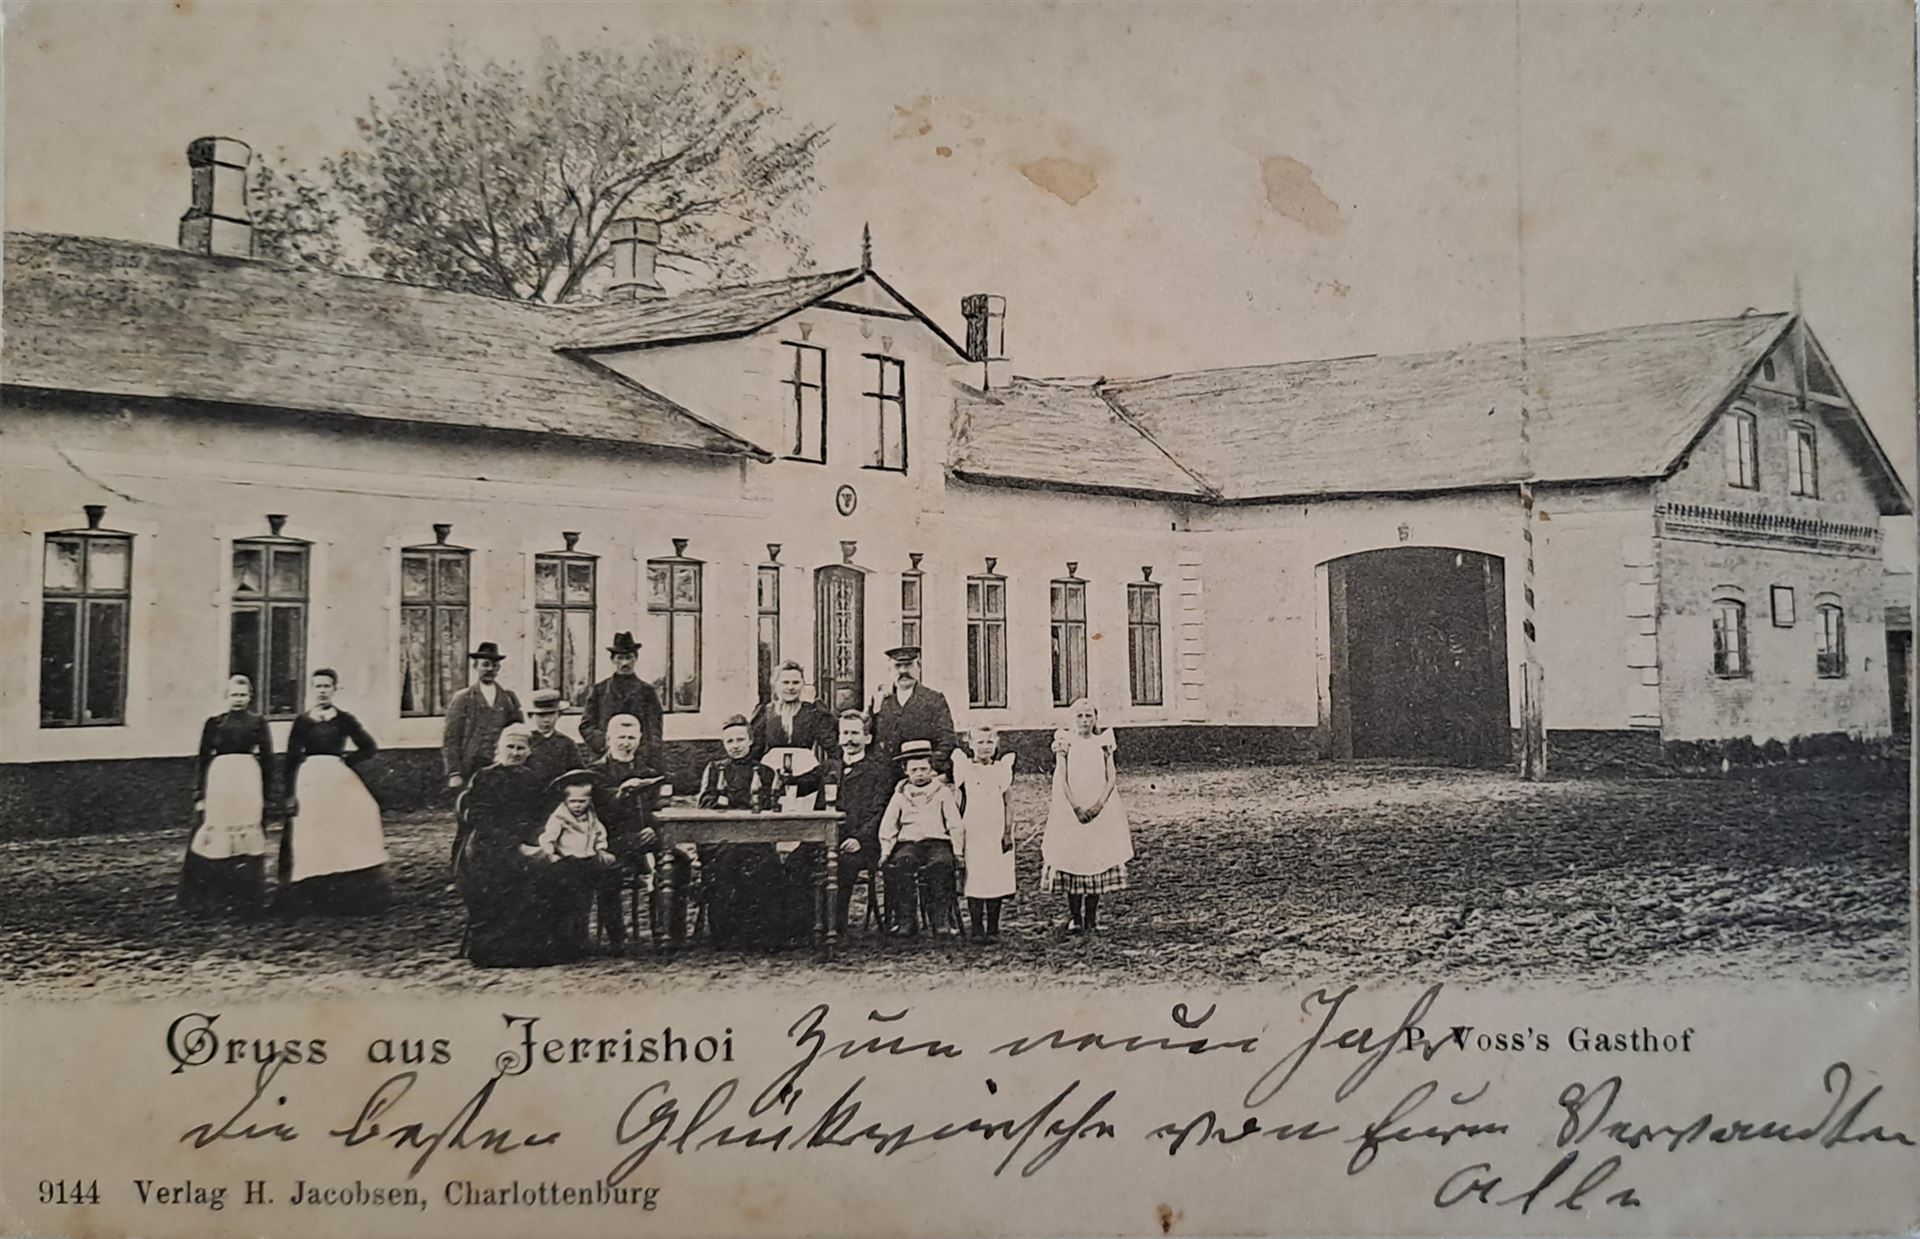 Gruss aus Jerrishoi Zum neuen Jahr P. Voss's Gasthof
die besten Glückwünsche von Euren Verwandten
Alle
9144 Verlag H. Jacobsen, Charlottenburg